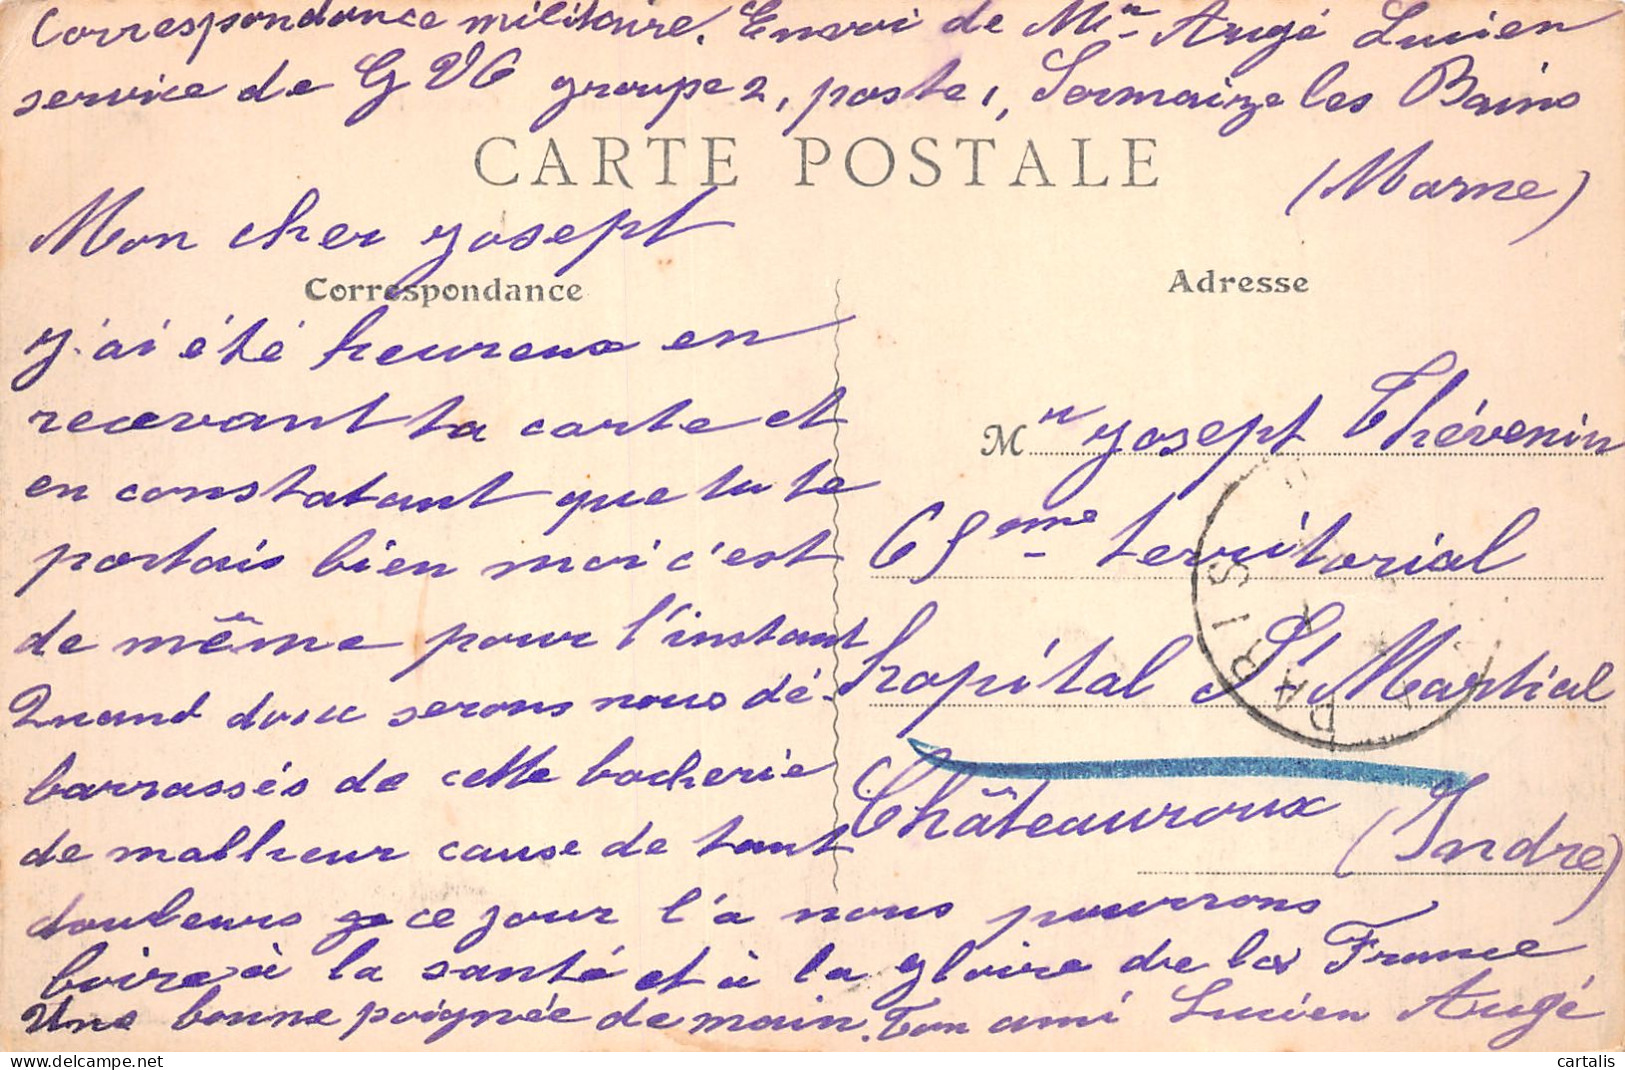 Correspondance militaire. Envoi de Mr Augé Lucien
service de G V C groupe 2, poste 1, Sermaize les Bains
(Marne)
CARTE POSTALE
Mon cher yosept
Correspondance
y'ai été heureux en
recevant ta carte et
en constatant que tu te
portais bien moi c'est
de même pour l'instant
Quand donc serons nous dé-
barrassés de cette bocherie
de malheur cause de tant
douleurs ce jour l'a nous pourrons
boire à la santé et à la gloire de la France
Une bonne poignée de main. Ton ami Lucien Augé
Adresse
Mr yosept Thévenin
65eme territorial
hopital St Martial
Châteauroux
(Indre)
PARIS
cartalis